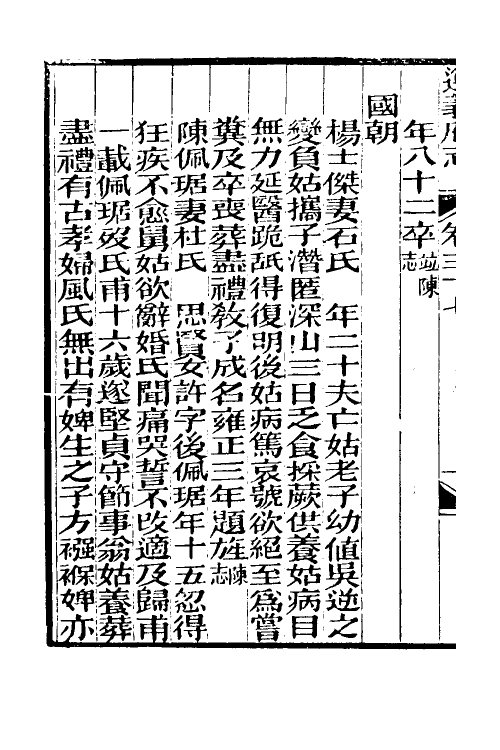 遵義府志 卷三十七
年八十二卒 竝陳志
國朝
楊士傑妻石氏 年二十夫亡姑老子幼值吳逆之
變負姑攜子潛匿深山三日乏食採蕨供養姑病目
無力延醫跪舐得復明後姑病篤哀號欲絕至爲嘗
糞及卒喪葬盡禮敎子成名雍正三年題旌 陳志
陳佩琚妻杜氏 思賢女許字後佩琚年十五忽得
狂疾不愈舅姑欲辭婚氏聞痛哭誓不改適及歸甫
一載佩琚歿氏甫十六歲遂堅貞守節事翁姑養葬
盡禮有古孝婦風氏無出有婢生之子方襁褓婢亦